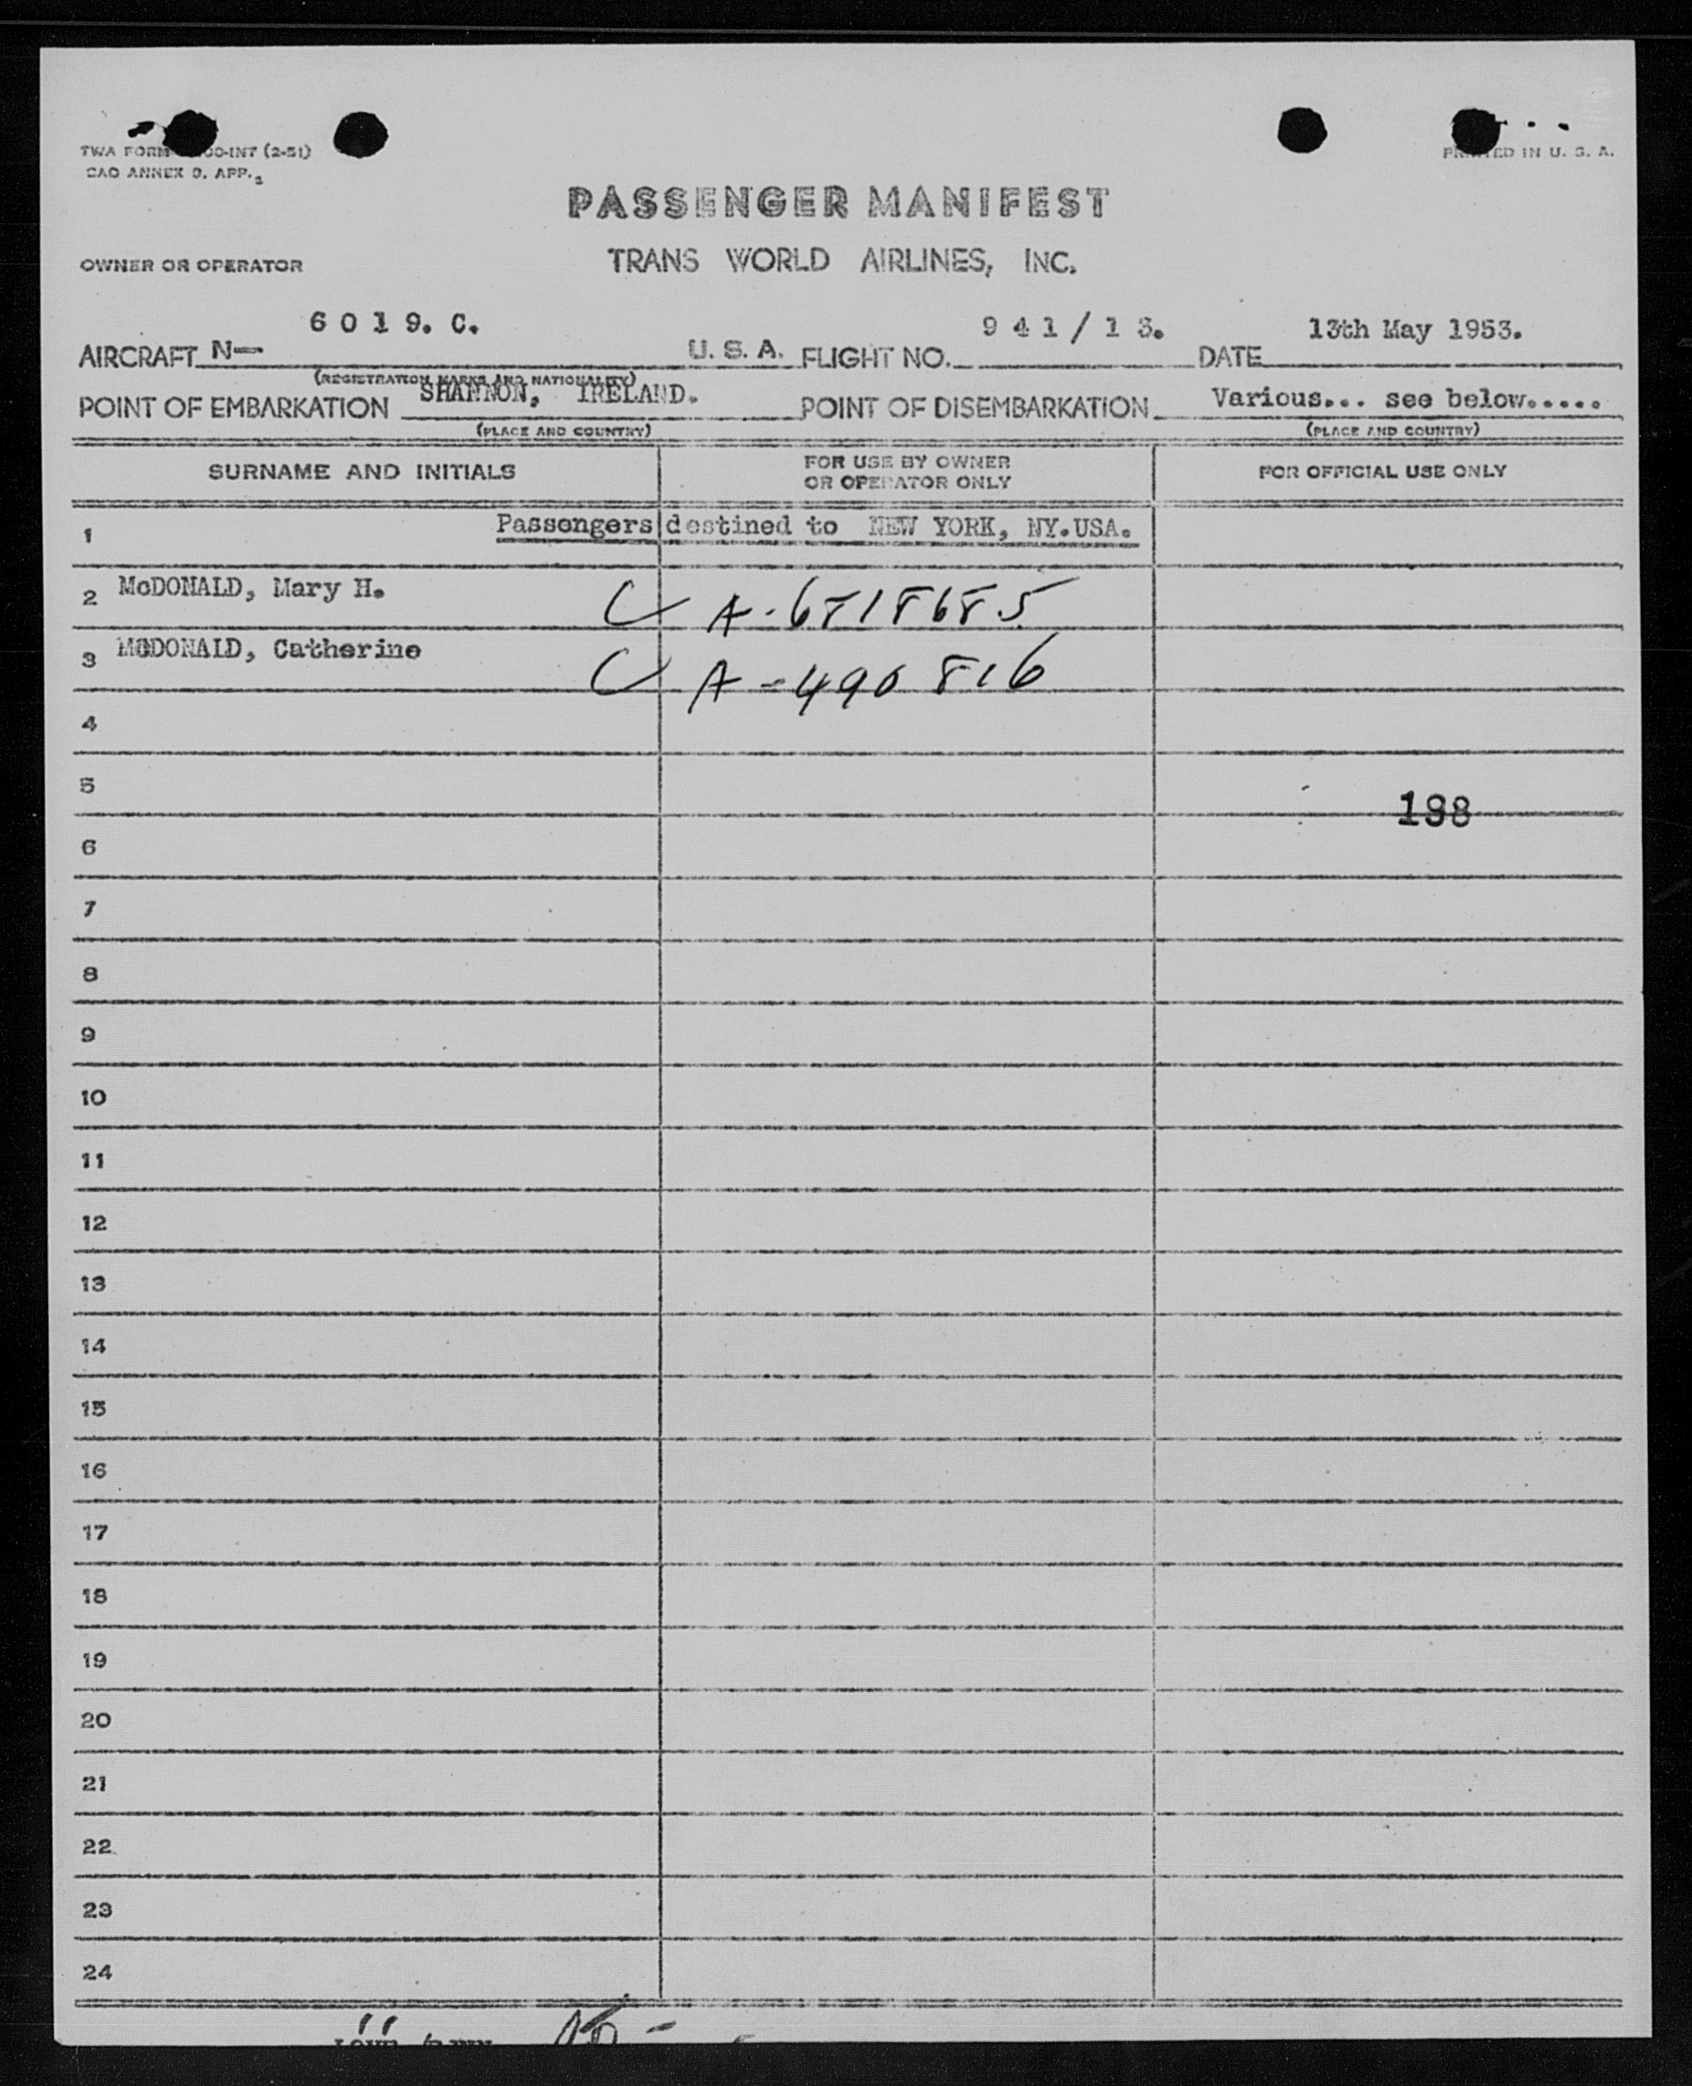 TWA FORM 00-INT (2-51)
PRINTED IN U. S. A.
PASSENGER MANIFEST
OWNER OR OPERATOR TRANS WORLD AIRLINES, INC.
6 0 1 9. C. 9 4 1 / 1 3. 13th May 1953.
AIRCRAFT N- U. S. A. FLIGHT NO. DATE
(REGISTRATION MARKS AND NATIONALITY)
POINT OF EMBARKATION SHANNON, IRELAND. POINT OF DISEMBARKATION Various... see below.....
(PLACE AND COUNTRY) (PLACE AND COUNTRY)
SURNAME AND INITIALS FOR USE BY OWNER OR OPERATOR ONLY FOR OFFICIAL USE ONLY
1 Passengers destined to NEW YORK, NY.USA.
2 McDONALD, Mary H. C A-6818685
3 McDONALD, Catherine C A-490 816
4
5
198
6
7
8
9
10
11
12
13
14
15
16
17
18
19
20
21
22
23
24